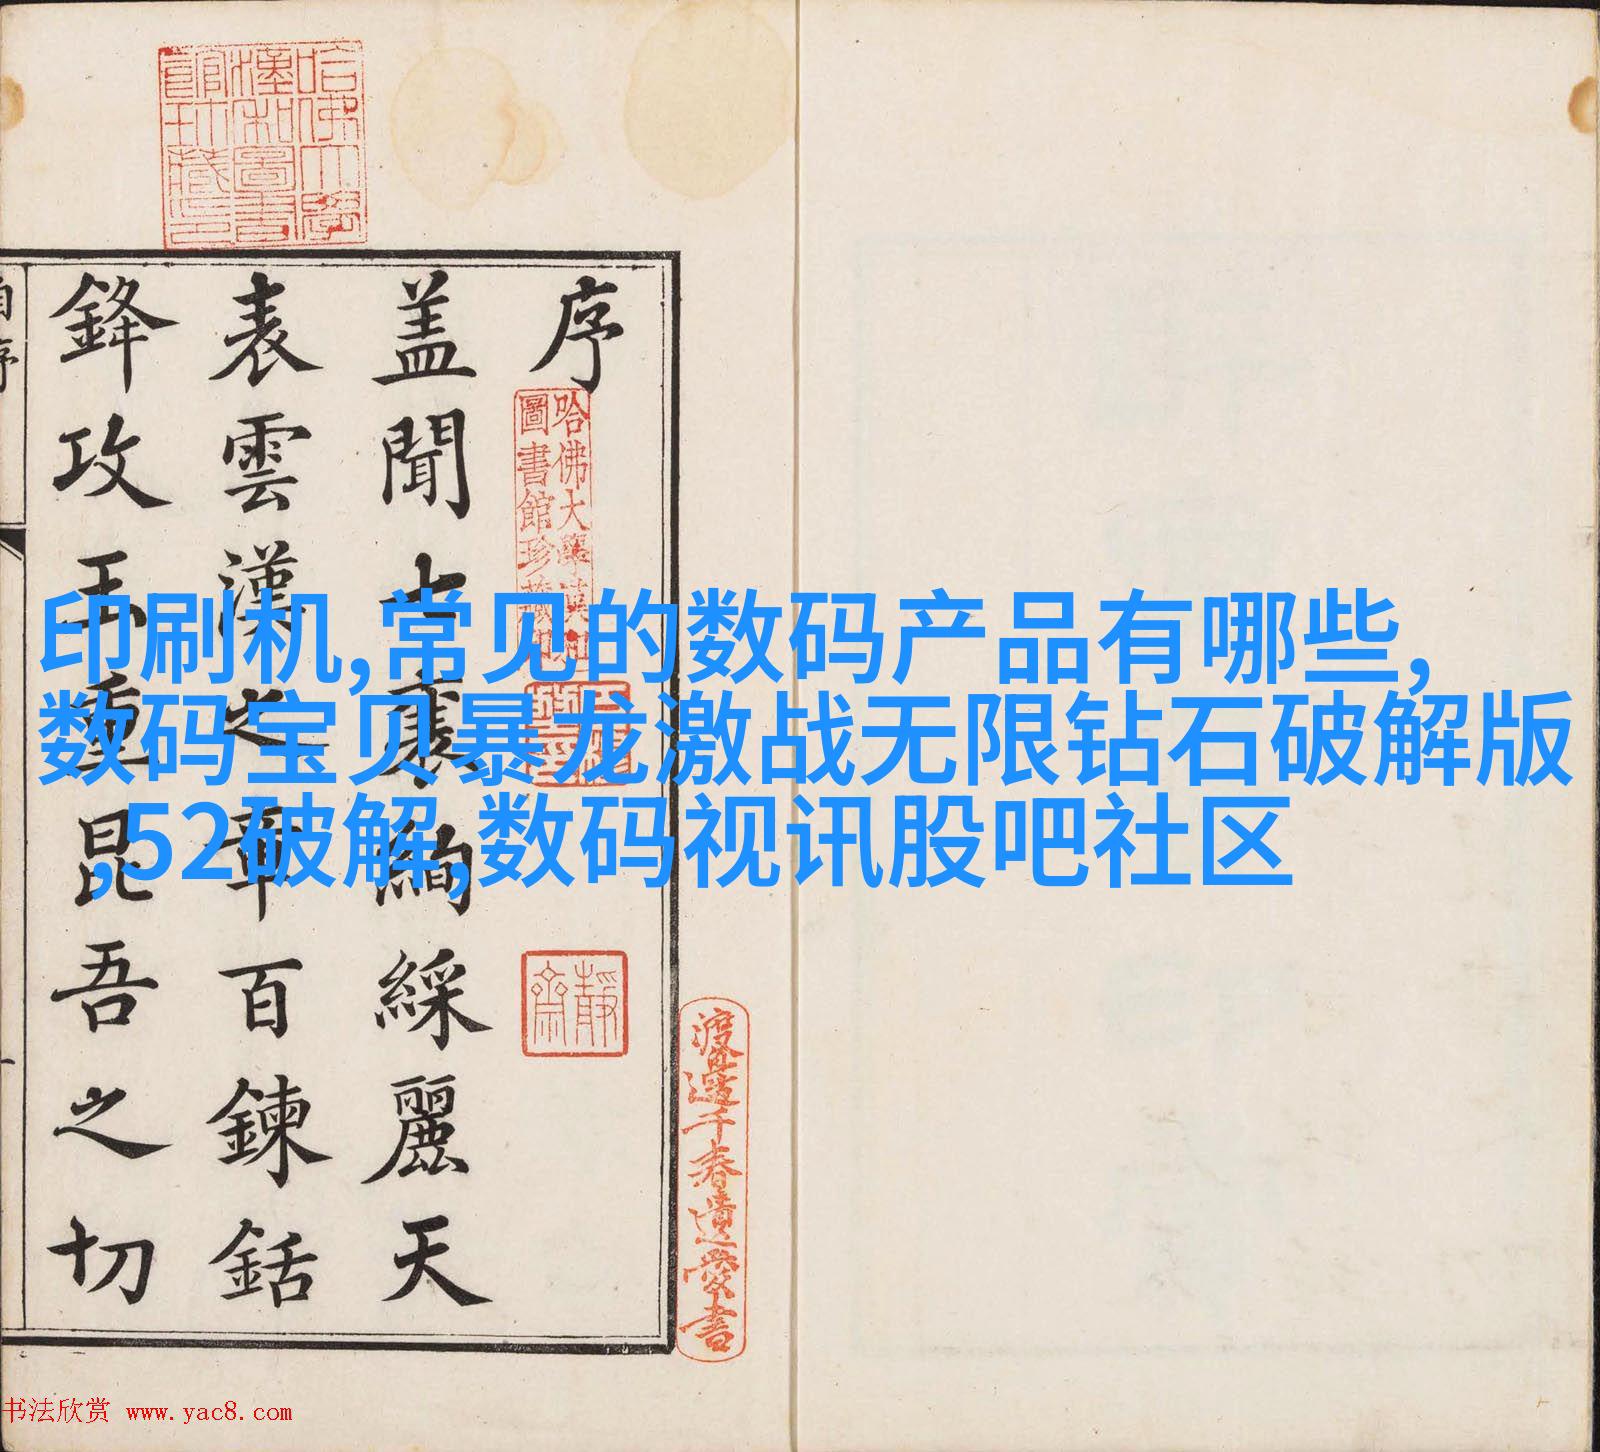 哈佛大學
漢和圖書
館珍藏印
序
哈佛大學漢和
圖書館珍藏印
靜齋
蓋聞士衷綯綵麗天
表雲漢之章百鍊銛
鋒攻玉重昆吾之切
自序
渡邊千春遺愛書
印刷机,常见的数码产品有哪些,
数码宝贝暴龙激战无限钻石破解版
,52破解,数码视讯股吧社区
书法欣赏 www.yac8.com